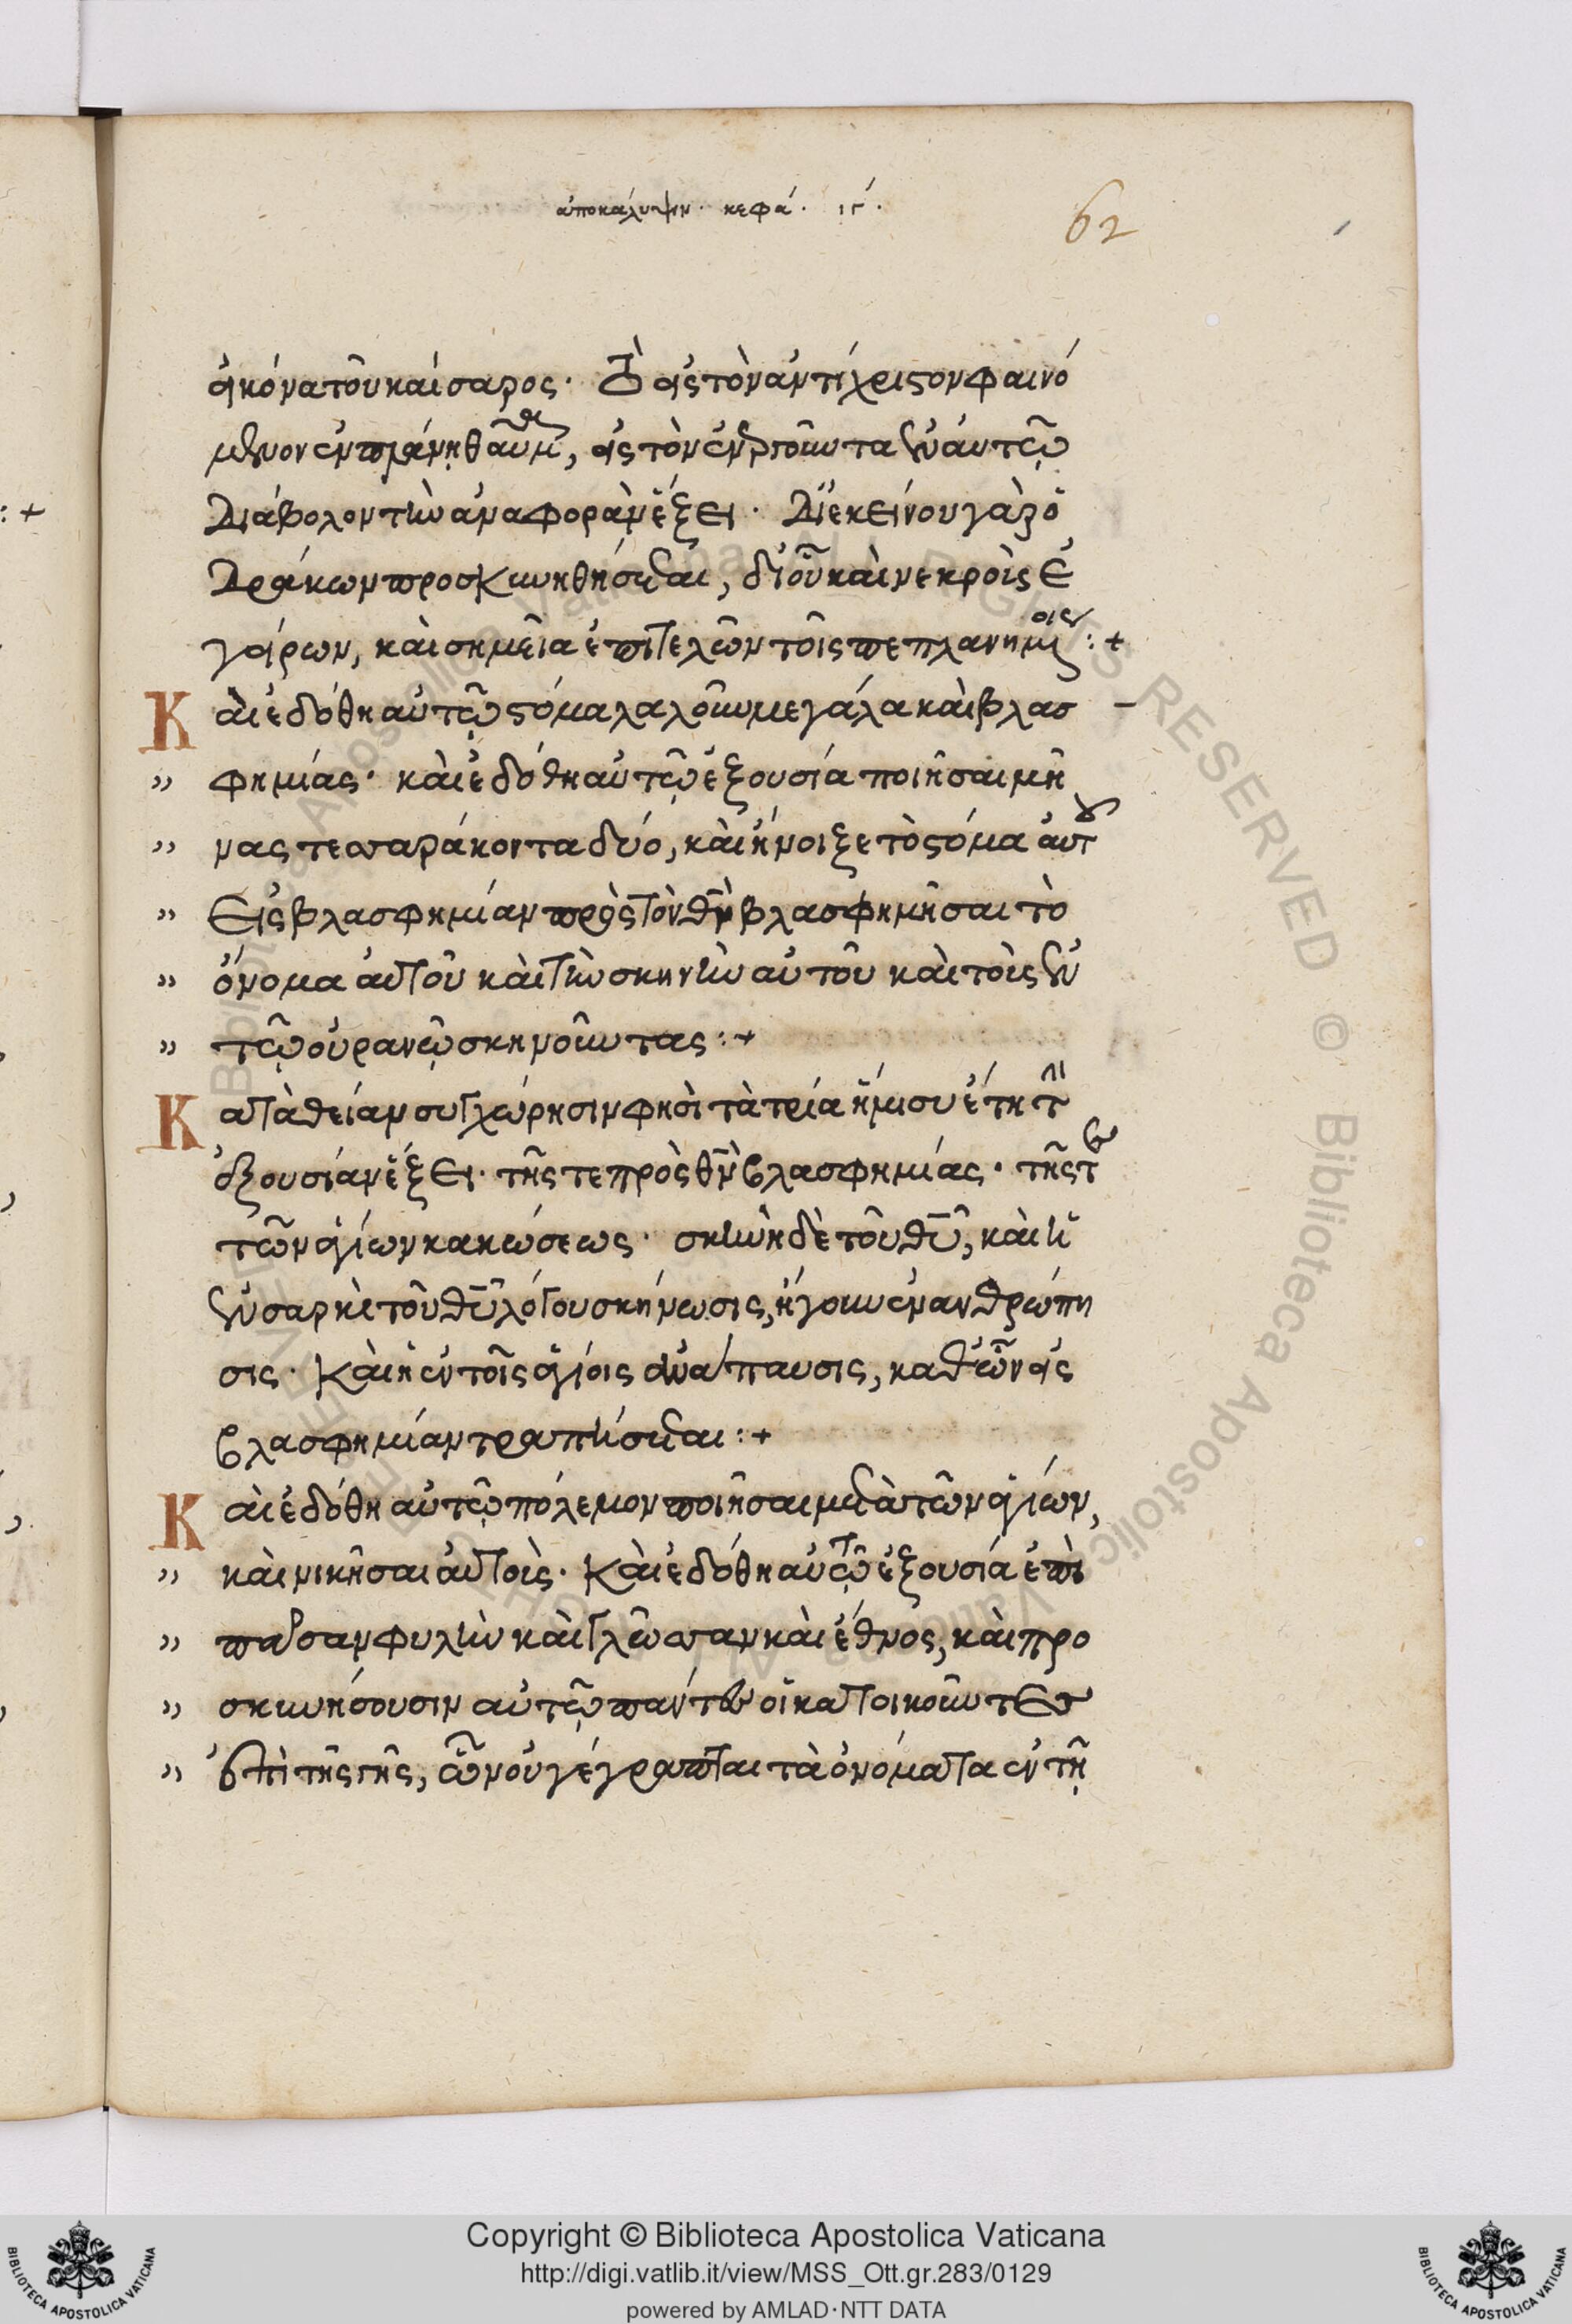 ἀποκάλυψιν. κεφά. ιγ΄.
62
εἰκόνα τοῦ καίσαρος. τὸ εἰς τὸν ἀντίχριστον φαινό
μενον ἐν πλάνῃ θαῦμα, εἰς τὸν ἐνεργοῦντα ἐν ἀυτῷ
Διάβολον τὴν ἀναφορὰν ἕξει. Δι' ἐκείνου γὰρ ὁ
Δράκων προσκυνηθήσεται, δι' οὗ καὶ νεκροὶς ἐ
γείρων, καὶ σημεῖα ἐπιτελῶν τοῖς πεπλανημένοις :+
Καὶ ἐδόθη αὐτῷ στόμα λαλοῦν μεγάλα καὶ βλασ
" φημίας. καὶ ἐδόθη αὐτῷ ἐξουσία ποιῆσαι μῆ
" νας τεσσαράκοντα δύο, καὶ ἤνοιξε τὸ στόμα ἀυτοῦ
" Εἰς βλασφημίαν πρὸς τὸν θν̄ βλασφημῆσαι τὸ
" ὄνομα αὐτοῦ καὶ τὴν σκηνὴν αὐτοῦ καὶ τοὶς ἐν
" τῷ οὐρανῷ σκηνοῦντας :+
Κατὰ θείαν συγχώρησιν φησὶ τὰ τρία ἥμισυ ἔτη τὴν
ἐξουσίαν ἕξει. τῆς τε πρὸς θν̄ βλασφημίας. τῆς τε
τῶν ἁγίων κακώσεως. σκηνὴ δὲ τοῦ θῡ, καὶ ἡ
ἐν σαρκὶ τοῦ θῡ λόγου σκήνωσις, ἤγουν ἐνανθρώπη
σις. Καὶ ἡ ἐν τοῖς ἁγίοις ἀνάπαυσις, καθ' ὧν εἰς
βλασφημίαν τραπήσεται :+
Καὶ ἐδόθη αὐτῷ πόλεμον ποιῆσαι μετὰ τῶν ἁγίων,
" καὶ νικῆσαι αὐτοὶς. Καὶ ἐδόθη αὐτῷ ἐξουσία ἐπὶ
" πᾶσαν φυλὴν καὶ γλῶσσαν καὶ ἔθνος, καὶ προ
" σκυνήσουσιν αὐτῷ πάντες οἱ κατοικοῦντες
" ἐπὶ τῆς γῆς, ὧν οὐ γέγραπται τὰ ὀνόματα ἐν τῇ
Copyright © Biblioteca Apostolica Vaticana
http://digi.vatlib.it/view/MSS_Ott.gr.283/0129
powered by AMLAD·NTT DATA